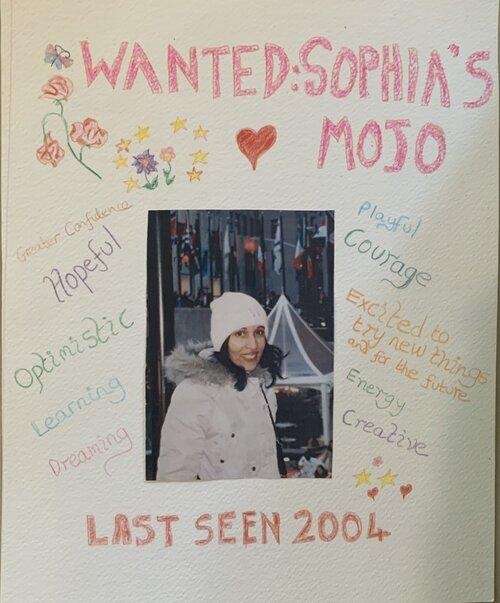 WANTED: SOPHIA'S
MOJO
Greater Confidence
Hopeful
Optimistic
Learning
Dreaming
Playful
Courage
Excited to
try new things
and for the future
Energy
Creative
LAST SEEN 2004